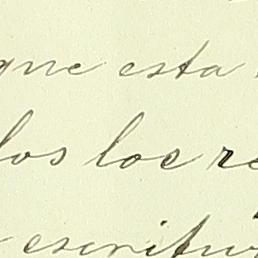 que esta
los loc re
escritur